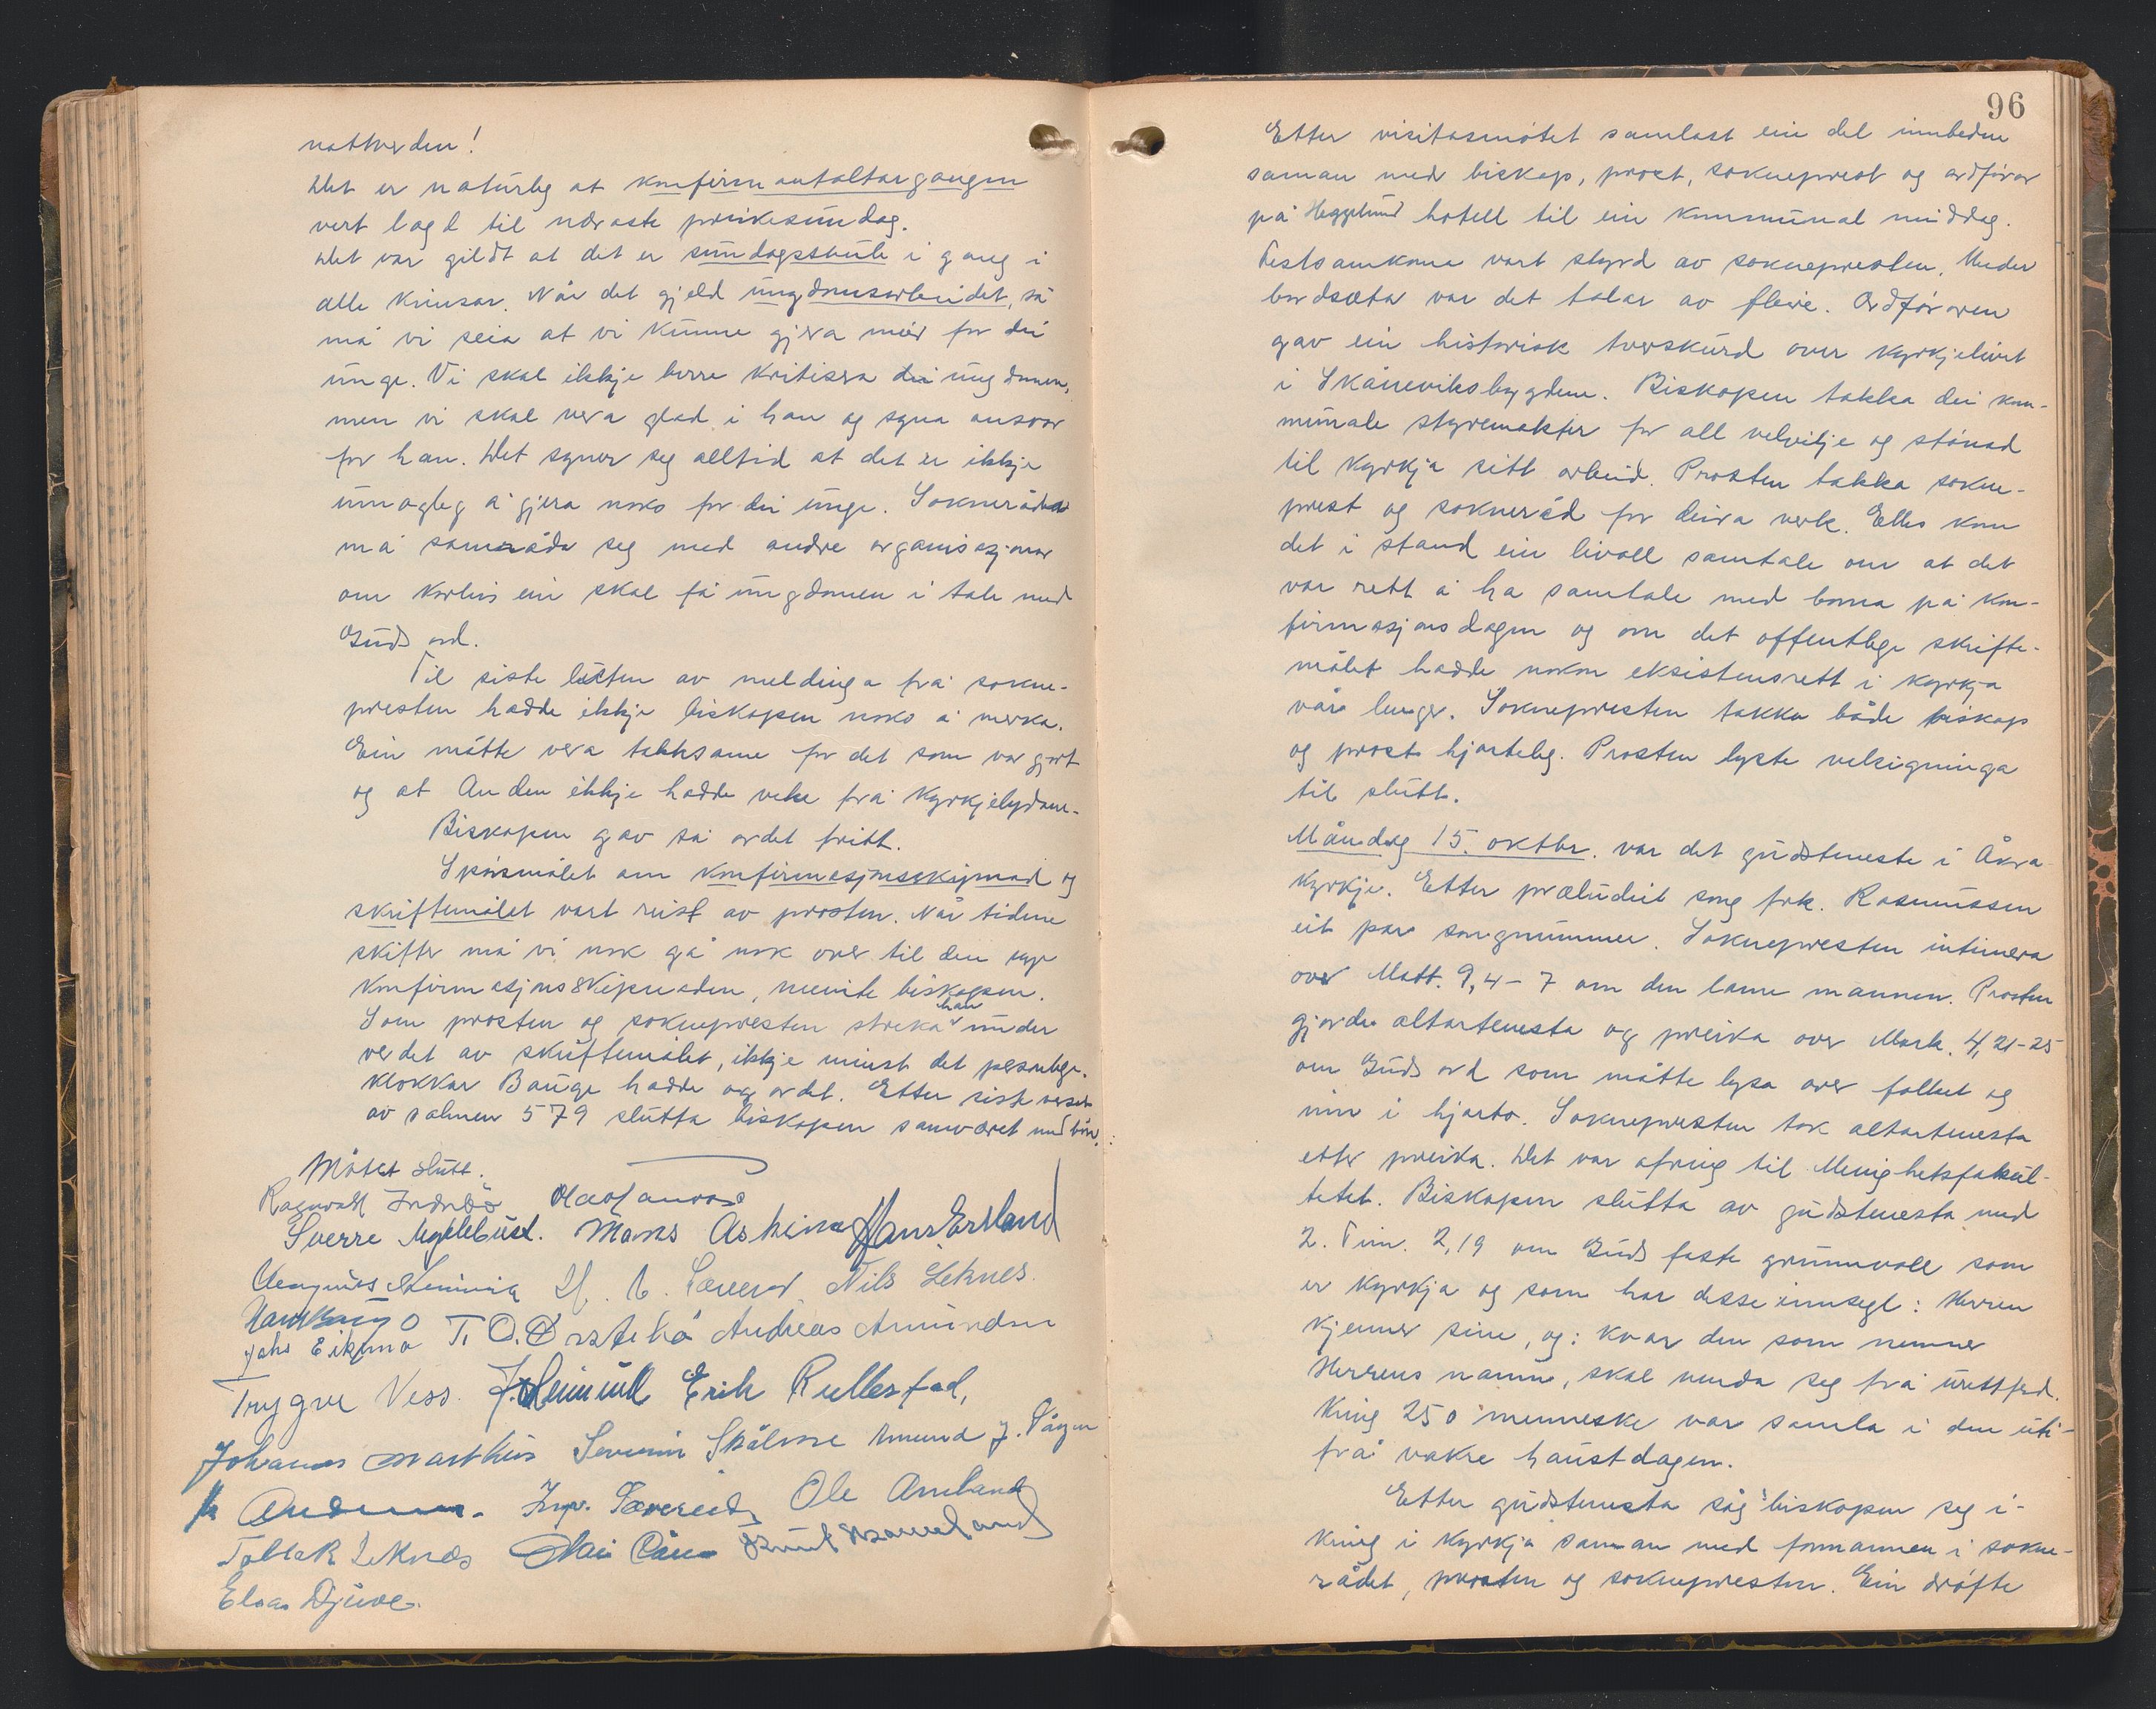 nattverden!
Det er naturleg at konfirmantaltargangen
vert lagt til næraste preikesundag.
Det var gildt at det er sundagsskule i gang i
alle krinsar. Når det gjeld ungdomsarbeidet, så
må vi seia at vi kunne gjera meir for dei
unge. Vi skal ikkje berre kritisera dei ungdomen,
men vi skal vera glad i han og syna ansvar
for han. Det syner seg alltid at det er ikkje
umogleg å gjera noko for dei unge. Sokneråda
må samråda seg med andre organisasjonar
om korleis ein skal få ungdomen i tale med
Guds ord.
Til siste luten av meldinga frå sokne-
presten hadde ikkje biskopen noko å merka.
Ein måtte vera takksame for det som var gjort
og at Anden ikkje hadde veke frå kyrkjelydane.
Biskopen gav så ordet fritt.
Spørsmålet om konfirmasjonsskipnad og
skriftemålet vart reist av prosten. Når tidene
skifter må vi nok gå nok over til den nye
konfirmasjonsskipnaden, meinte biskopen.
Som prosten og soknepresten streka han under
verdet av skriftemålet, ikkje minst det personlege.
Klokkar Bauge hadde og ordet. Etter siste verset
av salmen 579 slutta biskopen samværet med bøn.
Møtet slutt.
Ragnvald Indrebø
Sverre Myklebust. Mons Asheim Hans Ersland
Sævereid Nils Leknes.
Johs Eikemo T. O. Andreas Amundsen
Trygve Vess. Erik Rullestad,
Johannes Marthus Severin Skålnes Amund J. Vågen
Ingv. Sævereid Ole Arnland
Tollak Leknes
Elias Djuve.
96
Etter visitasmøtet samlast ein del innbedne
saman med biskop, prost, sokneprest og ordførar
på Heggelund hotell til ein kommunal middag.
Festsamkoma vart styrd av soknepresten. Under
bordsæta var det talar av fleire. Ordføraren
gav ein historisk tverskurd over kyrkjelivet
i Skåneviksbygdene. Biskopen takka dei kom-
munale styremakter for all velvilje og stønad
til kyrkja sitt arbeid. Prosten takka sokne-
prest og sokneråd for deira verk. Elles kom
det i stand ein livall samtale om at det
var rett å ha samtale med borna på kon-
firmasjonsdagen og om det offentlege skrifte-
målet hadde nokon eksistensrett i kyrkja
vår lenger. Soknepresten takka både biskop
og prost hjarteleg. Prosten lyste velsigninga
til slutt.
Måndag 15. oktbr. var det gudsteneste i Åkra
kyrkje. Etter præludiet song frk. Rasmussen
eit par songnummer. Soknepresten intimera
over Matt. 9,4-7 om den lame mannen. Prosten
gjorde altartenesta og preika over Mark. 4,21-25
om Guds ord som måtte lysa over folket og
inn i hjarto. Soknepresten tok altartenesta
etter preika. Det var ofring til Menighetsfakul-
tetet. Biskopen slutta av gudstenesta med
2. Tim. 2,19 om Guds faste grunnvoll som
er kyrkja og som har desse innsegl: Herren
kjenner sine, og: kvar den som nemner
Herrens namn, skal venda seg frå urettferd.
Kring 250 menneske var samla i den uti-
frå vakre haustdagen.
Etter gudstenesta såg biskopen seg i-
kring i kyrkja saman med formannen i sokne-
rådet, prosten og soknepresten. Ein drøfte